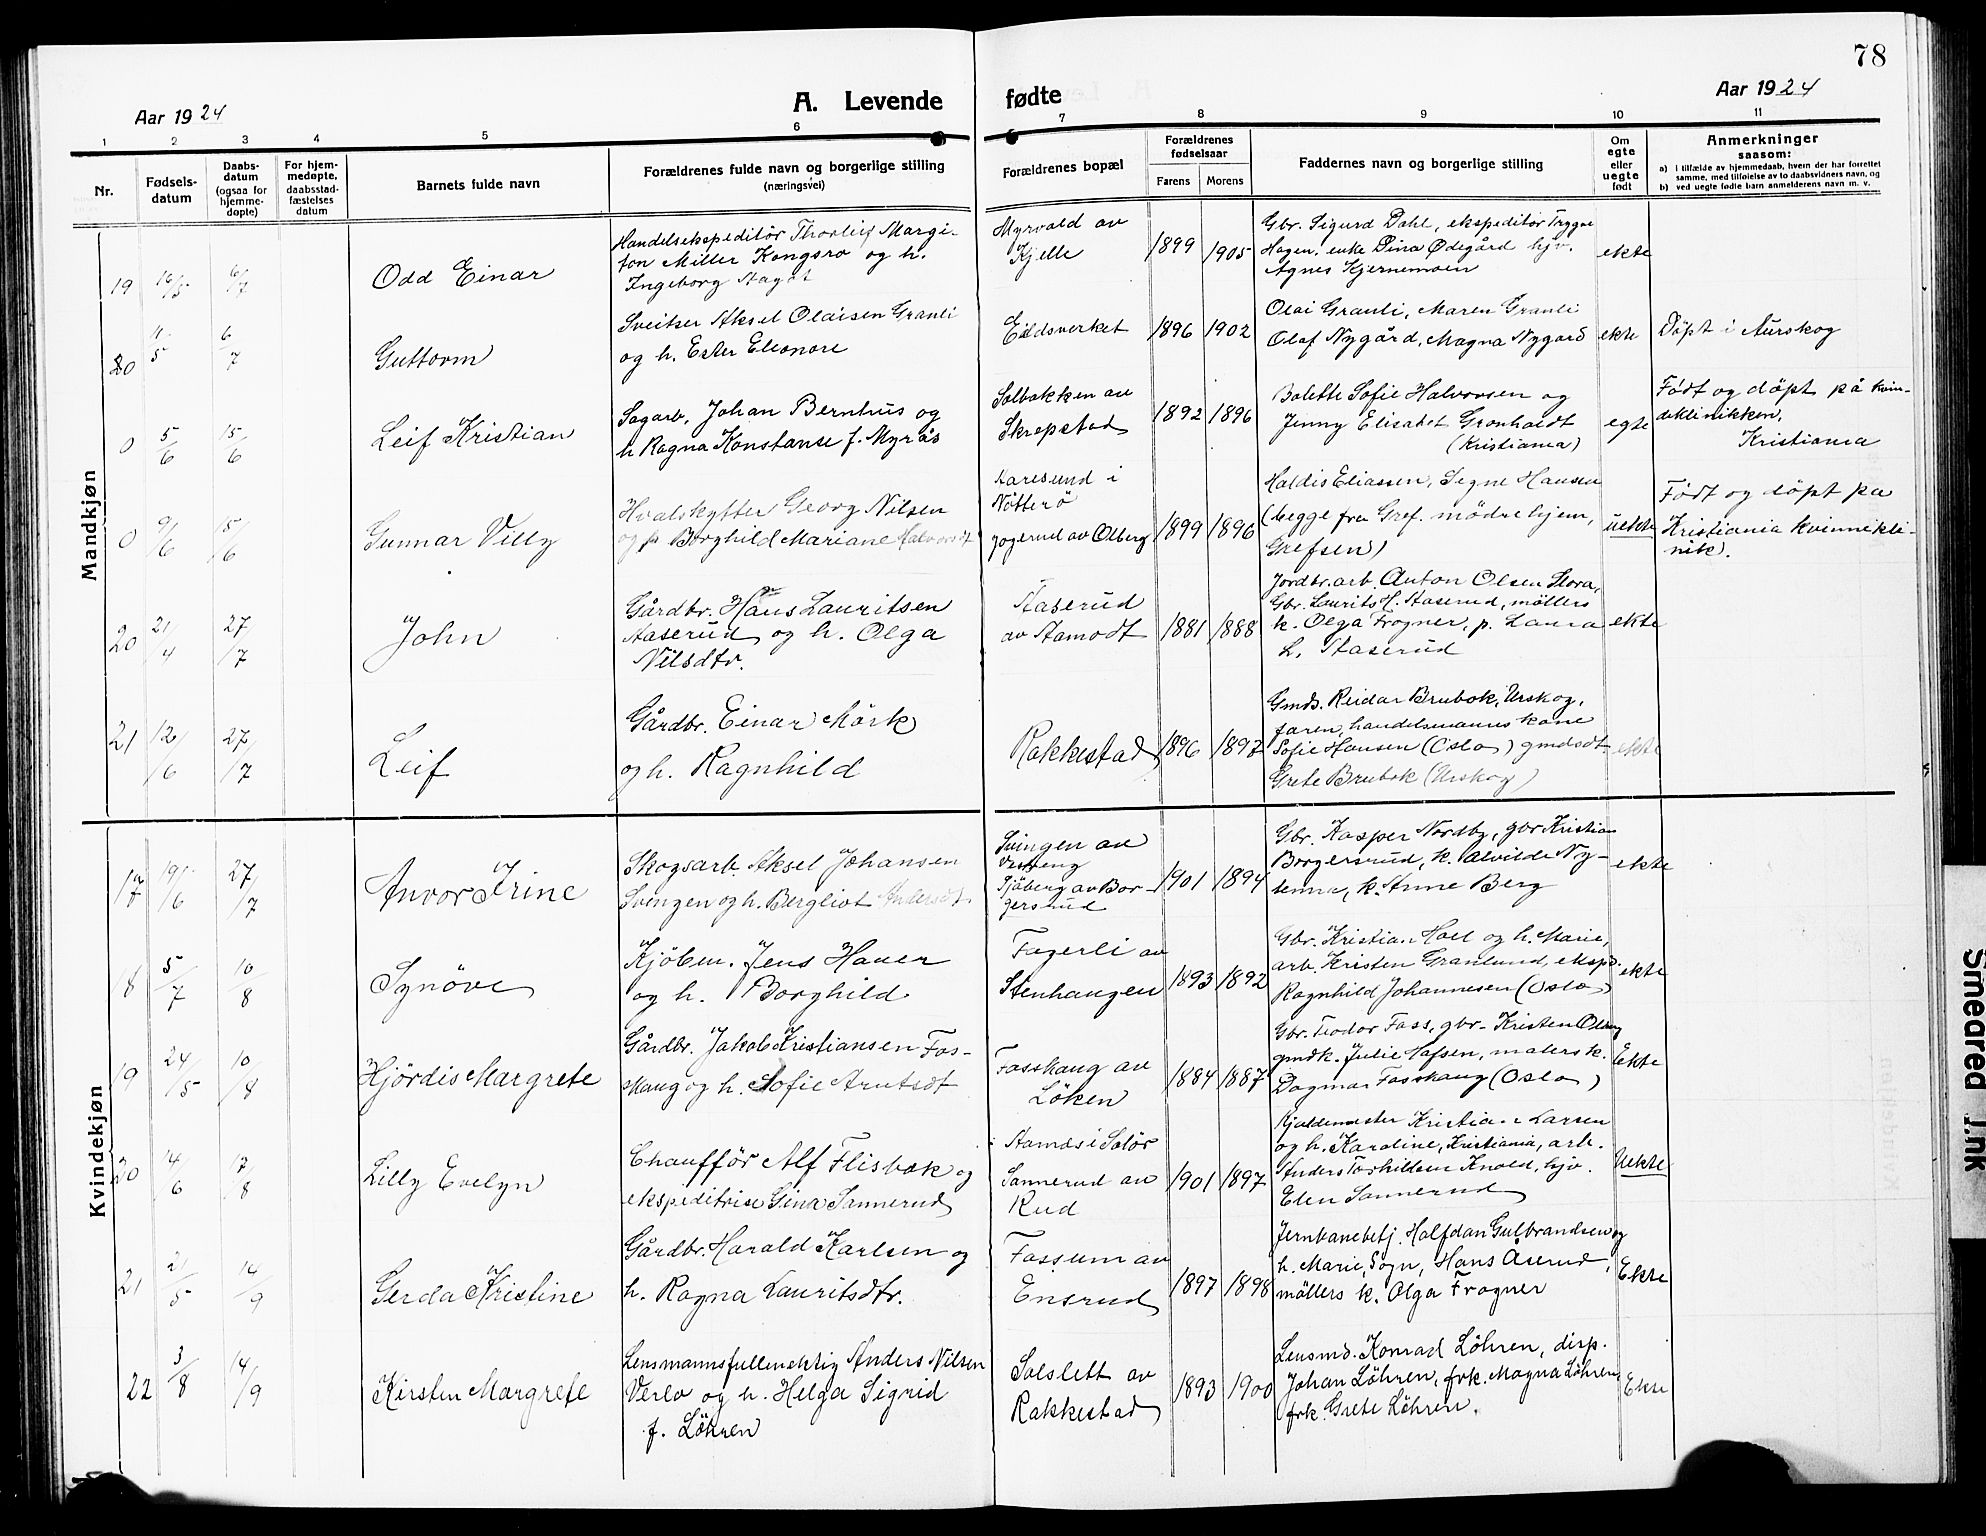 78
Aar 1924
A. Levende
fødte
Aar 1924
1 2 3 4 5 6 7 8 9 10 11
Nr.
Fødsels-
datum
Daabs-
datum
(ogsaa for
hjemme-
døpte)
For hjem-
medøpte,
daabsstad-
fæstelses
datum
Barnets fulde navn
Forældrenes fulde navn og borgerlige stilling
(næringsvei)
Forældrenes bopæl
Forældrenes
fødselsaar
Farens Morens
Faddernes navn og borgerlige stilling
Om
egte
eller
uegte
født
Anmerkninger
saasom:
a) i tilfælde av hjemmedaab, hvem der har forrettet
samme, med tilføielse av to daabsvidners navn, og
b) ved uegte fødte barn anmelderens navn m. v.
Mandkjøn
19 16/5 6/7
Odd Einar
Handelsekspeditör Thorleif Margi-
ton Miller Kongsro og h.
Ingeborg
Myrvold av
Kjelle
1899 1905
Gbr. Sigurd Dahl, ekspeditör Trygve
Hagen, enke Dina Ødegård hjv.
Agnes Kjernemoen
ekte
20 11/5 6/7
Guttorm
Sveitser Aksel Olaisen Granli
og h. Ester Eleonore
Eidsverket
1896 1902
Olai Granli, Maren Granli
Olaf Nygård, Magna Nygård
ekte
Döpt i Aurskog
0 5/6 15/6
Leif Kristian
Sagarb. Johan Bernhus og
h Ragna Konstanse f. Myrås
Solbakken av
Skrepstad
1892 1896
Bolette Sofie Halvorsen og
Jenny Elisabet Gronholdt
(Kristiania)
egte
Født og döpt på kvin-
deklinikken,
Kristiania
0 9/6 15/6
Gunnar Villy
Hvalskytter Georg Nilsen
og p Borghild Mariane Halvorsdt
Karesund i
Nötterö
gogerud av Olberg
1899 1896
Haldis Eliassen, Segne Hansen
(begge fra Gref. mödrehjem,
Grefsen)
uekte
Født og döpt pa
Kristiania kvinnekli-
nik).
20 21/4 27/7
John
Gårdbr. Hans Lauritsen
Staserud og h. Olga
Nilsdtr.
Staserud
av Stamodt
1881 1888
Jordbr. arb. Anton Olsen Flora,
Gbr. Laurits H. Staserud, möllers
k. Olga Frogner, p. Laura
L. Staserud
ekte
21 12/6 27/7
Leif
Gårdbr. Einar Mörk
og h. Ragnhild
Rakkestad
1896 1897
Gmd. Reidar Brubok, Urskog,
faren, handelsmanns kone
Sofie Hansen (Oslo) gmdsdt.
Grete Brubok (Urskog)
ekte
Kvindekjøn
17 19/6 27/7
Anvor Irine
Skogsarb. Aksel Johansen
Svingen og h. Bergliot Andersdt.
Svingen av
Vestreng
Sjöberg av Bor-
gersrud
1901 1894
Gbr. Kasper Nordby, gbr Kristian
Borgersrud, k. Alvilde Ny-
tenna, k. Anne Berg
ekte
18 5/7 10/8
Synöve
Kjöbm. Jens Haner
og h. Borghild
Fagerli av
Stenhaugen
1893 1892
Gbr. Kristian Moe og h. Marie,
arb. Kristen Granlund, ekspd.
Ragnhild Johannesen (Oslo)
ekte
19 24/5 10/8
Hjördis Margrete
Gårdbr. Jakob Kristiansen Fos-
skaug og h. Sofie Arntsdt
Fosskaug av
Löken
1884 1887
Gbr. Teodor Foss, gbr. Kristen Olberg
gmdk. Julie Hafsen, malers k.
Dagmar Fosskaug (Oslo)
Ekte
20 14/6 17/8
Lilly Evelyn
Chaufför Alf Flisbak og
ekspeditrise Gina Sannerud
Aamos i Solör
Sannerud av
Rud
1901 1897
Kristian Larsen
og h. Karoline, Kristiania, arb.
Anders Torkildsen Knold, hjv.
Elen Sannerud
Uekte
21 21/5 14/9
Gerda Kristine
Gårdbr. Harald Karlsen og
h. Ragna Lauritsdtr.
Fossum av
Ensrud
1897 1898
Jernbanebetj. Halfdan Gulbrandsen og
h. Marie, Sogn, Hans Åserud,
möllers k. Olga Frogner
Ekte
22 3/8 14/9
Kirsten Margrete
Lensmannsfullmektig Anders Nilsen
Verlo og h. Helga Sigrid
f. Löhren
Solslett av
Rakkestad
1893 1900
Lensmd. Konrad Löhren, disp.
Johan Löhren, frk. Magna Löhren,
frk. Grete Löhren.
Ekte
Smeared Ink